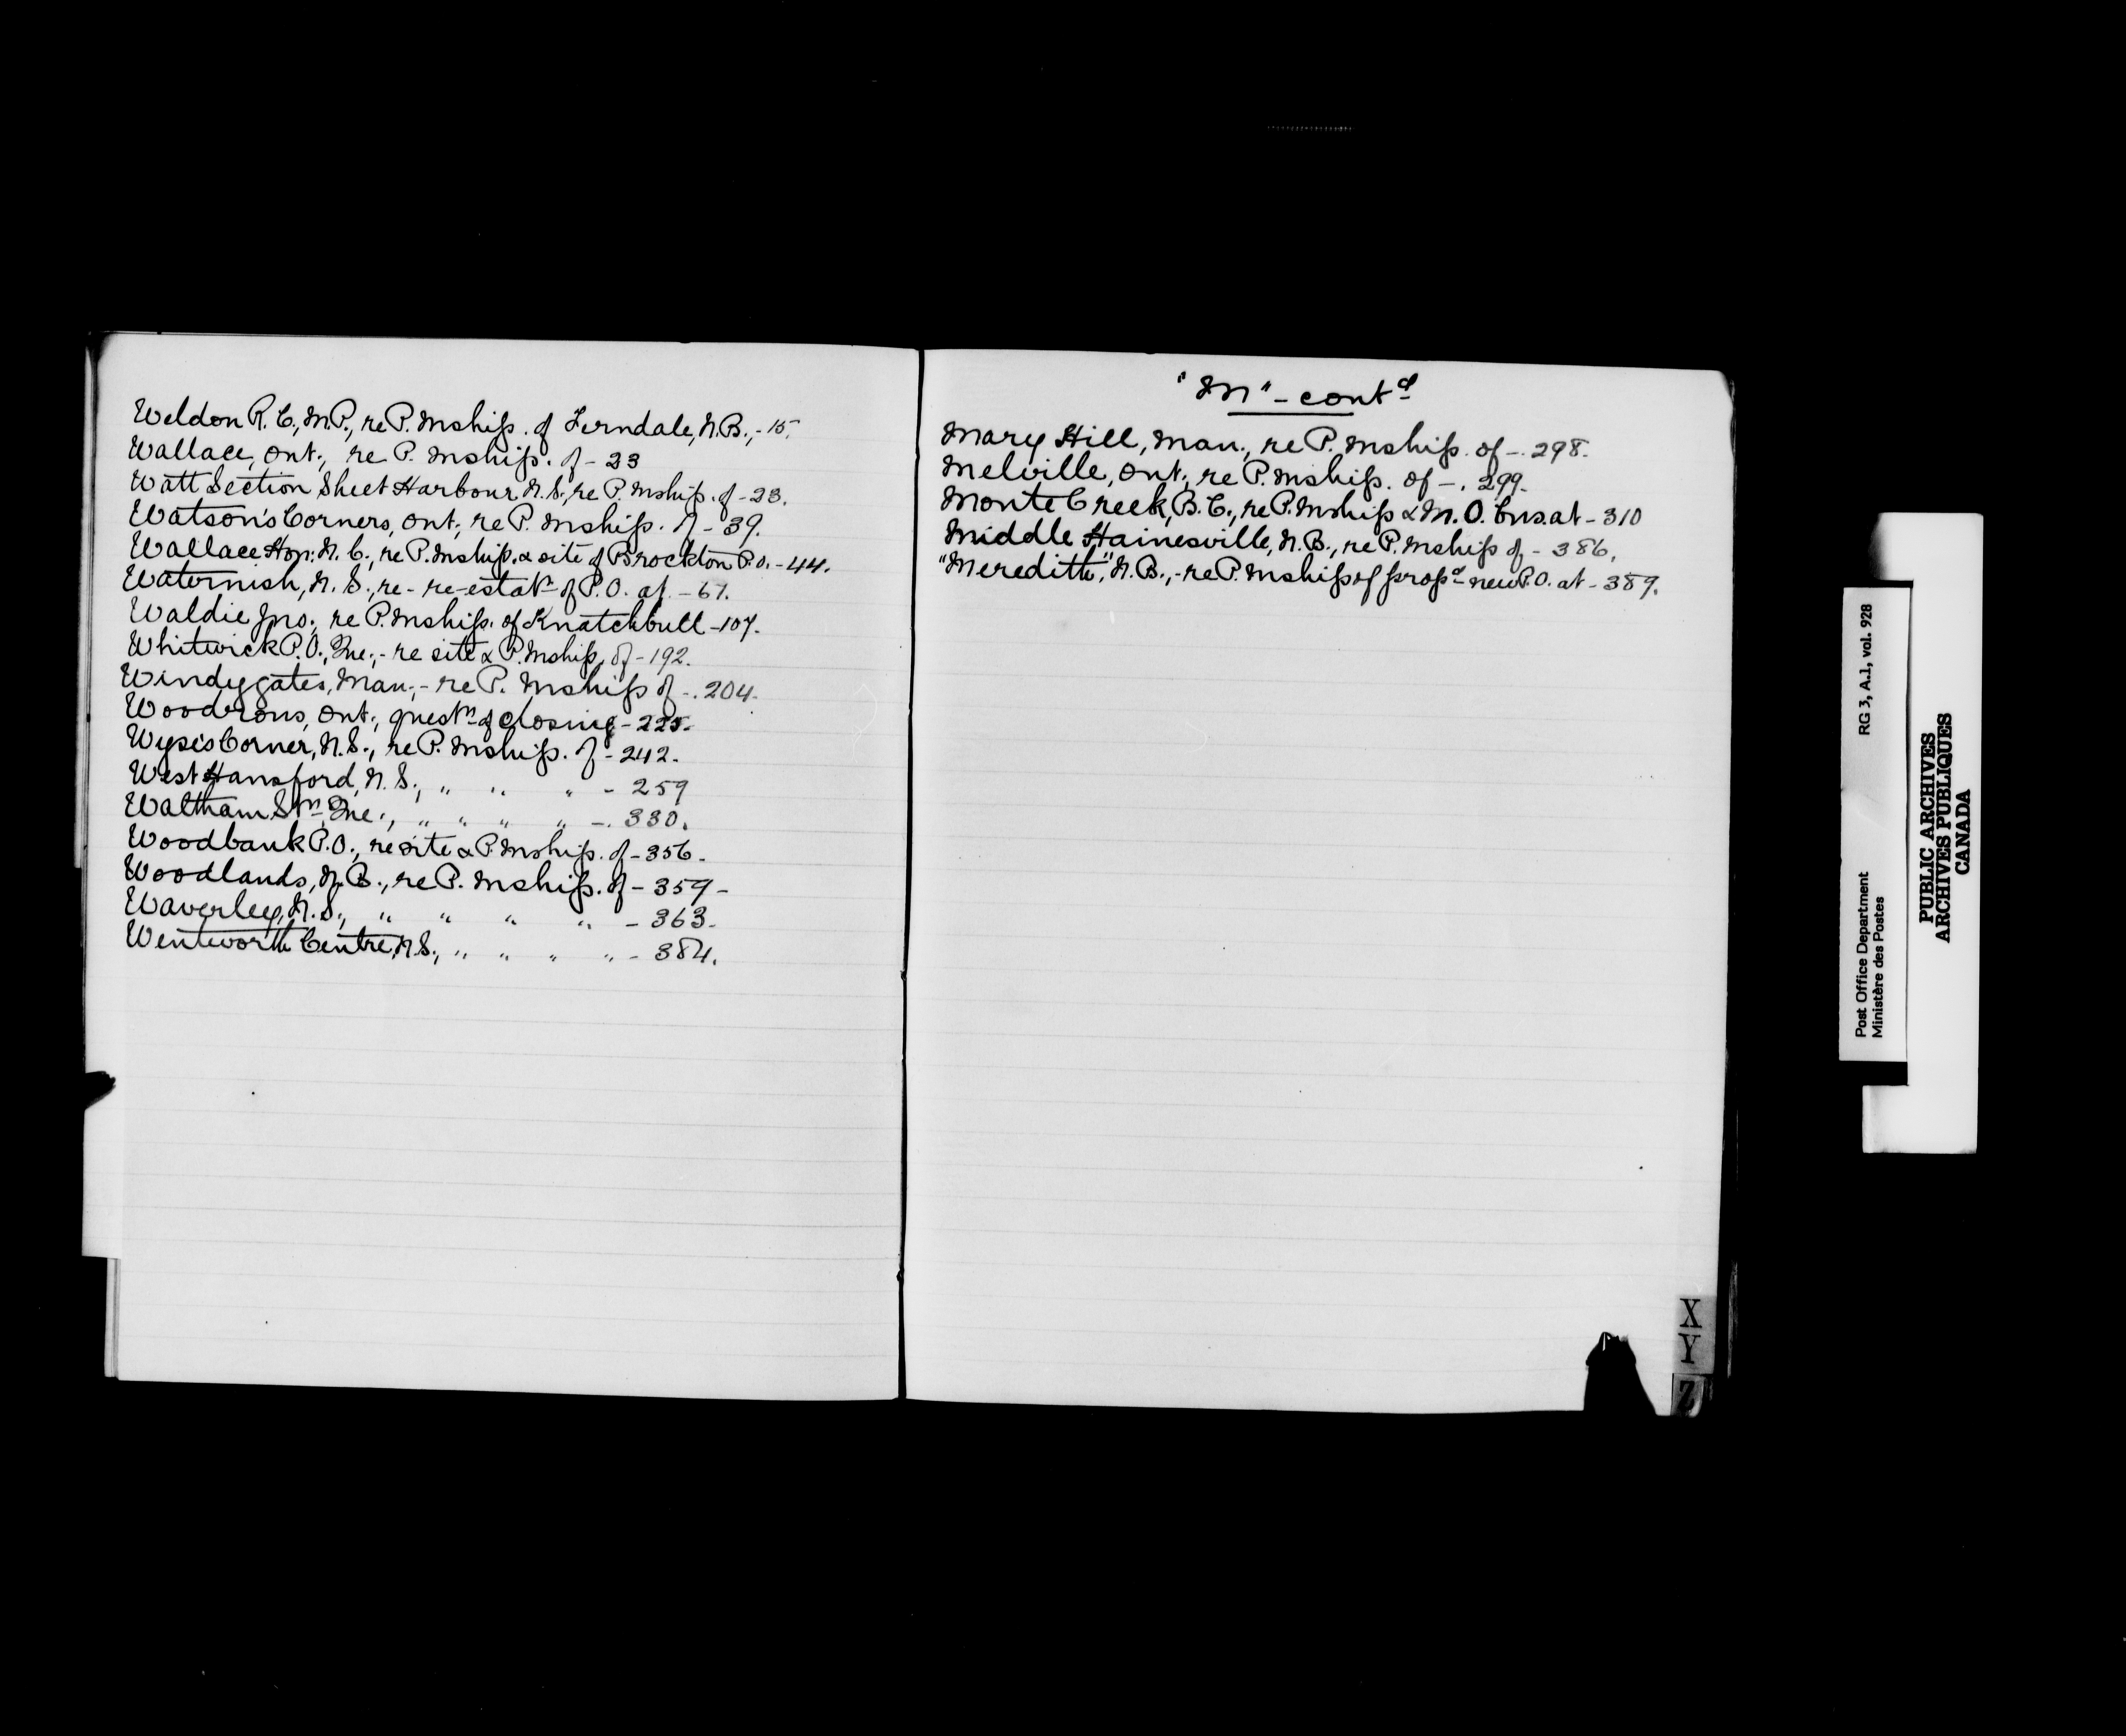 Weldon R. C., M.P., re P. Mship. of Ferndale, N.B., - 15.
Wallace, Ont., re P. Mship. of - 23
Watt Section Sheet Harbour N.S., re P. Mship. of - 28.
Watson's Corners, Ont., re P. Mship. of - 39.
Wallace Hon. N. C., re P. Mship. & site of Brockton P.O. - 44.
Waternish, N.S., re- re-estabt. of P.O. at - 67.
Waldie Jno., re P. Mship. of Knatchbull - 107.
Whitwick P.O., Que., - re site & P. Mship. of - 192.
Windygates, Man., - re P. Mship of - 204.
Woodrous, Ont., questn. of closing - 225.
Wyse's Corner, N.S., re P. Mship. of - 242.
West Hansford, N.S., " " " - 259
Waltham Stn. Que., " " " " - 330.
Woodbank P.O., re site & P. Mship. of - 356.
Woodlands, N.B., re P. Mship. of - 359 -
Waverley, N.S., " " " " - 363.
Wentworth Centre, N.S., " " " " - 384.
"M" - contd
Mary Hill, Man., re P. Mship. of - 298.
Melville, Ont., re P. Mship. of - 299.
Monte Creek, B.C., re P. Mship & M.O. bus. at - 310
Middle Hainesville, N.B., re P. Mship of - 386.
"Meredith," N.B., - re P. Mship of propd new P.O. at - 389.
X
Y
Z
Post Office Department RG 3, A.1, vol. 928
Ministère des Postes
PUBLIC ARCHIVES
ARCHIVES PUBLIQUES
CANADA